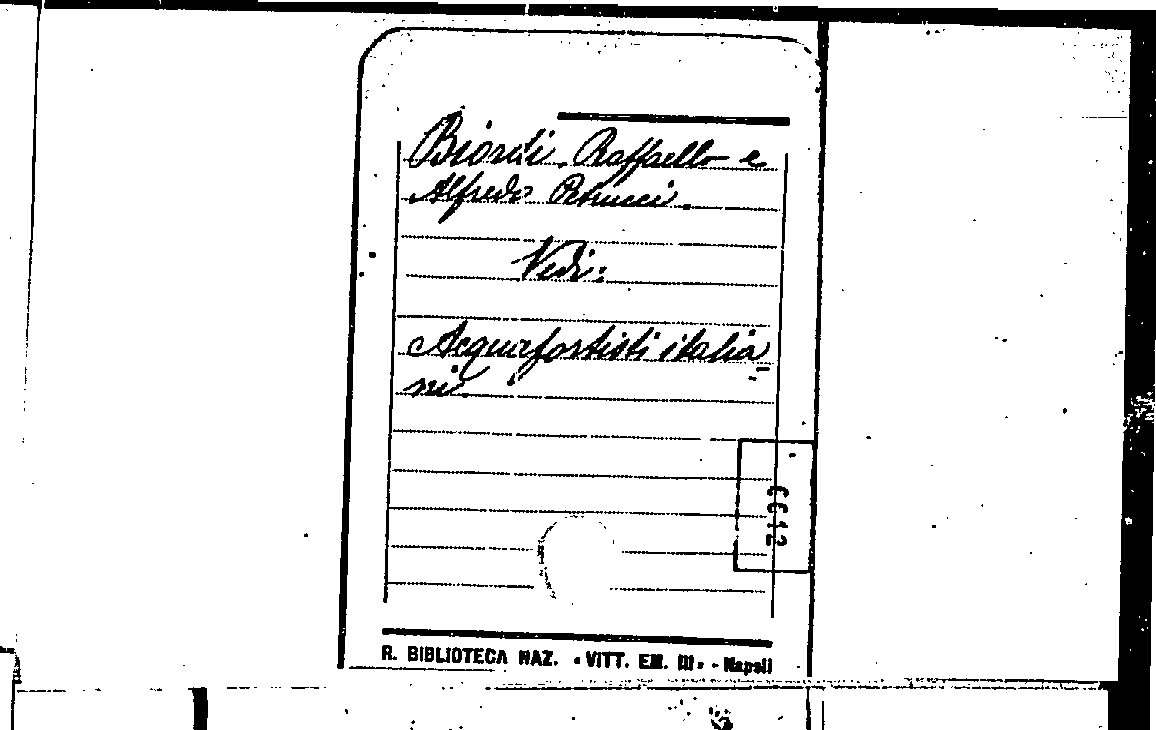 Biondi Raffaello e
Alfredo Petrucci.
Vedi:
Acquafortisti italia
ni.
R. BIBLIOTECA NAZ. «VITT. EM. III» - Napoli